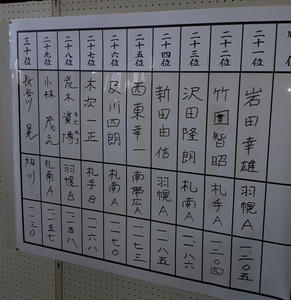 二十一位 岩田幸雄 羽幌A 一二〇五
二十二位 竹 智昭 札手A 一二〇四
二十三位 沢田隆朗 札南A 一一八八
二十四位 新田由信 羽幌A 一一八五
二十五位 西東幸一 南帯広A 一一七三
二十六位 及川四朗 札南A 一一七〇
二十七位 木次一正 札手B 一一六八
二十八位 荒木資 羽幌B 一一五八
二十九位 小林茂之 札南A 一一五七
三十位 長谷川晃 旭川 一一三〇